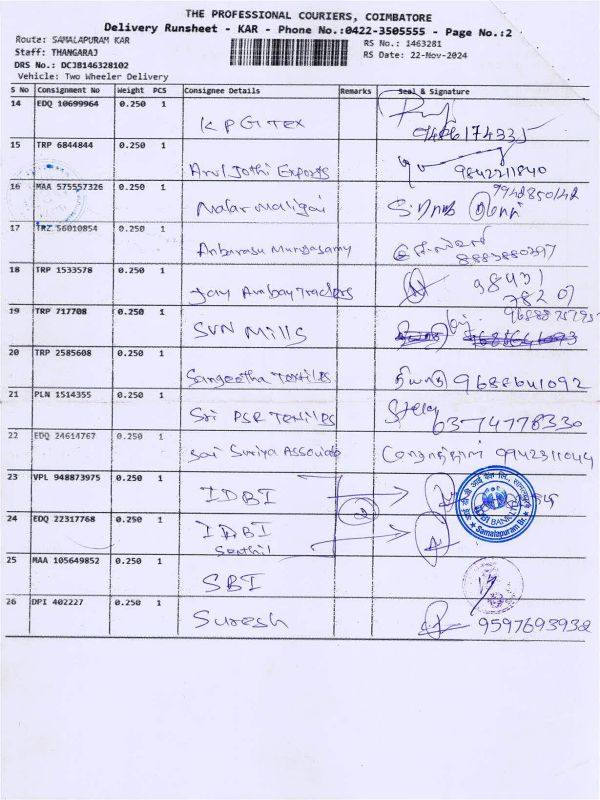 THE PROFESSIONAL COURIERS, COIMBATORE
Delivery Runsheet - KAR - Phone No.:0422-3505555 - Page No.:2
Route: SAMALAPURAM KAR
RS No.: 1463281
Staff: THANGARAJ
RS Date: 22-Nov-2024
DRS No.: DCJB146328102
Vehicle: Two Wheeler Delivery
S No Consignment No Weight PCS Consignee Details Remarks Seal & Signature
14 EDQ 10699964 0.250 1
KPG Tex
15 TRP 6844844 0.250 1
Arul Jothi Exports 9842211840
16 MAA 575557326 0.250 1
Malar Maligai
17 TRZ 56010854 0.250 1
Anbarasu Murugasamy
18 TRP 1533578 0.250 1
Jay Ambay Traders 98431
78207
19 TRP 717708 0.250 1
SVN Mills
20 TRP 2585608 0.250 1
Sangeetha Textiles 9688641092
21 PLN 1514355 0.250 1
Sri PSR Textiles 6374778330
22 EDQ 24614767 0.250 1
Sai Suriya Associate 9942311044
23 VPL 948873975 0.250 1
IDBI
2
24 EDQ 22317768 0.250 1
IDBI
Senthil
IDBI BANK
Samalapuram Br.
25 MAA 105649852 0.250 1
SBI
26 DPI 402227 0.250 1
Suresh 9597693938